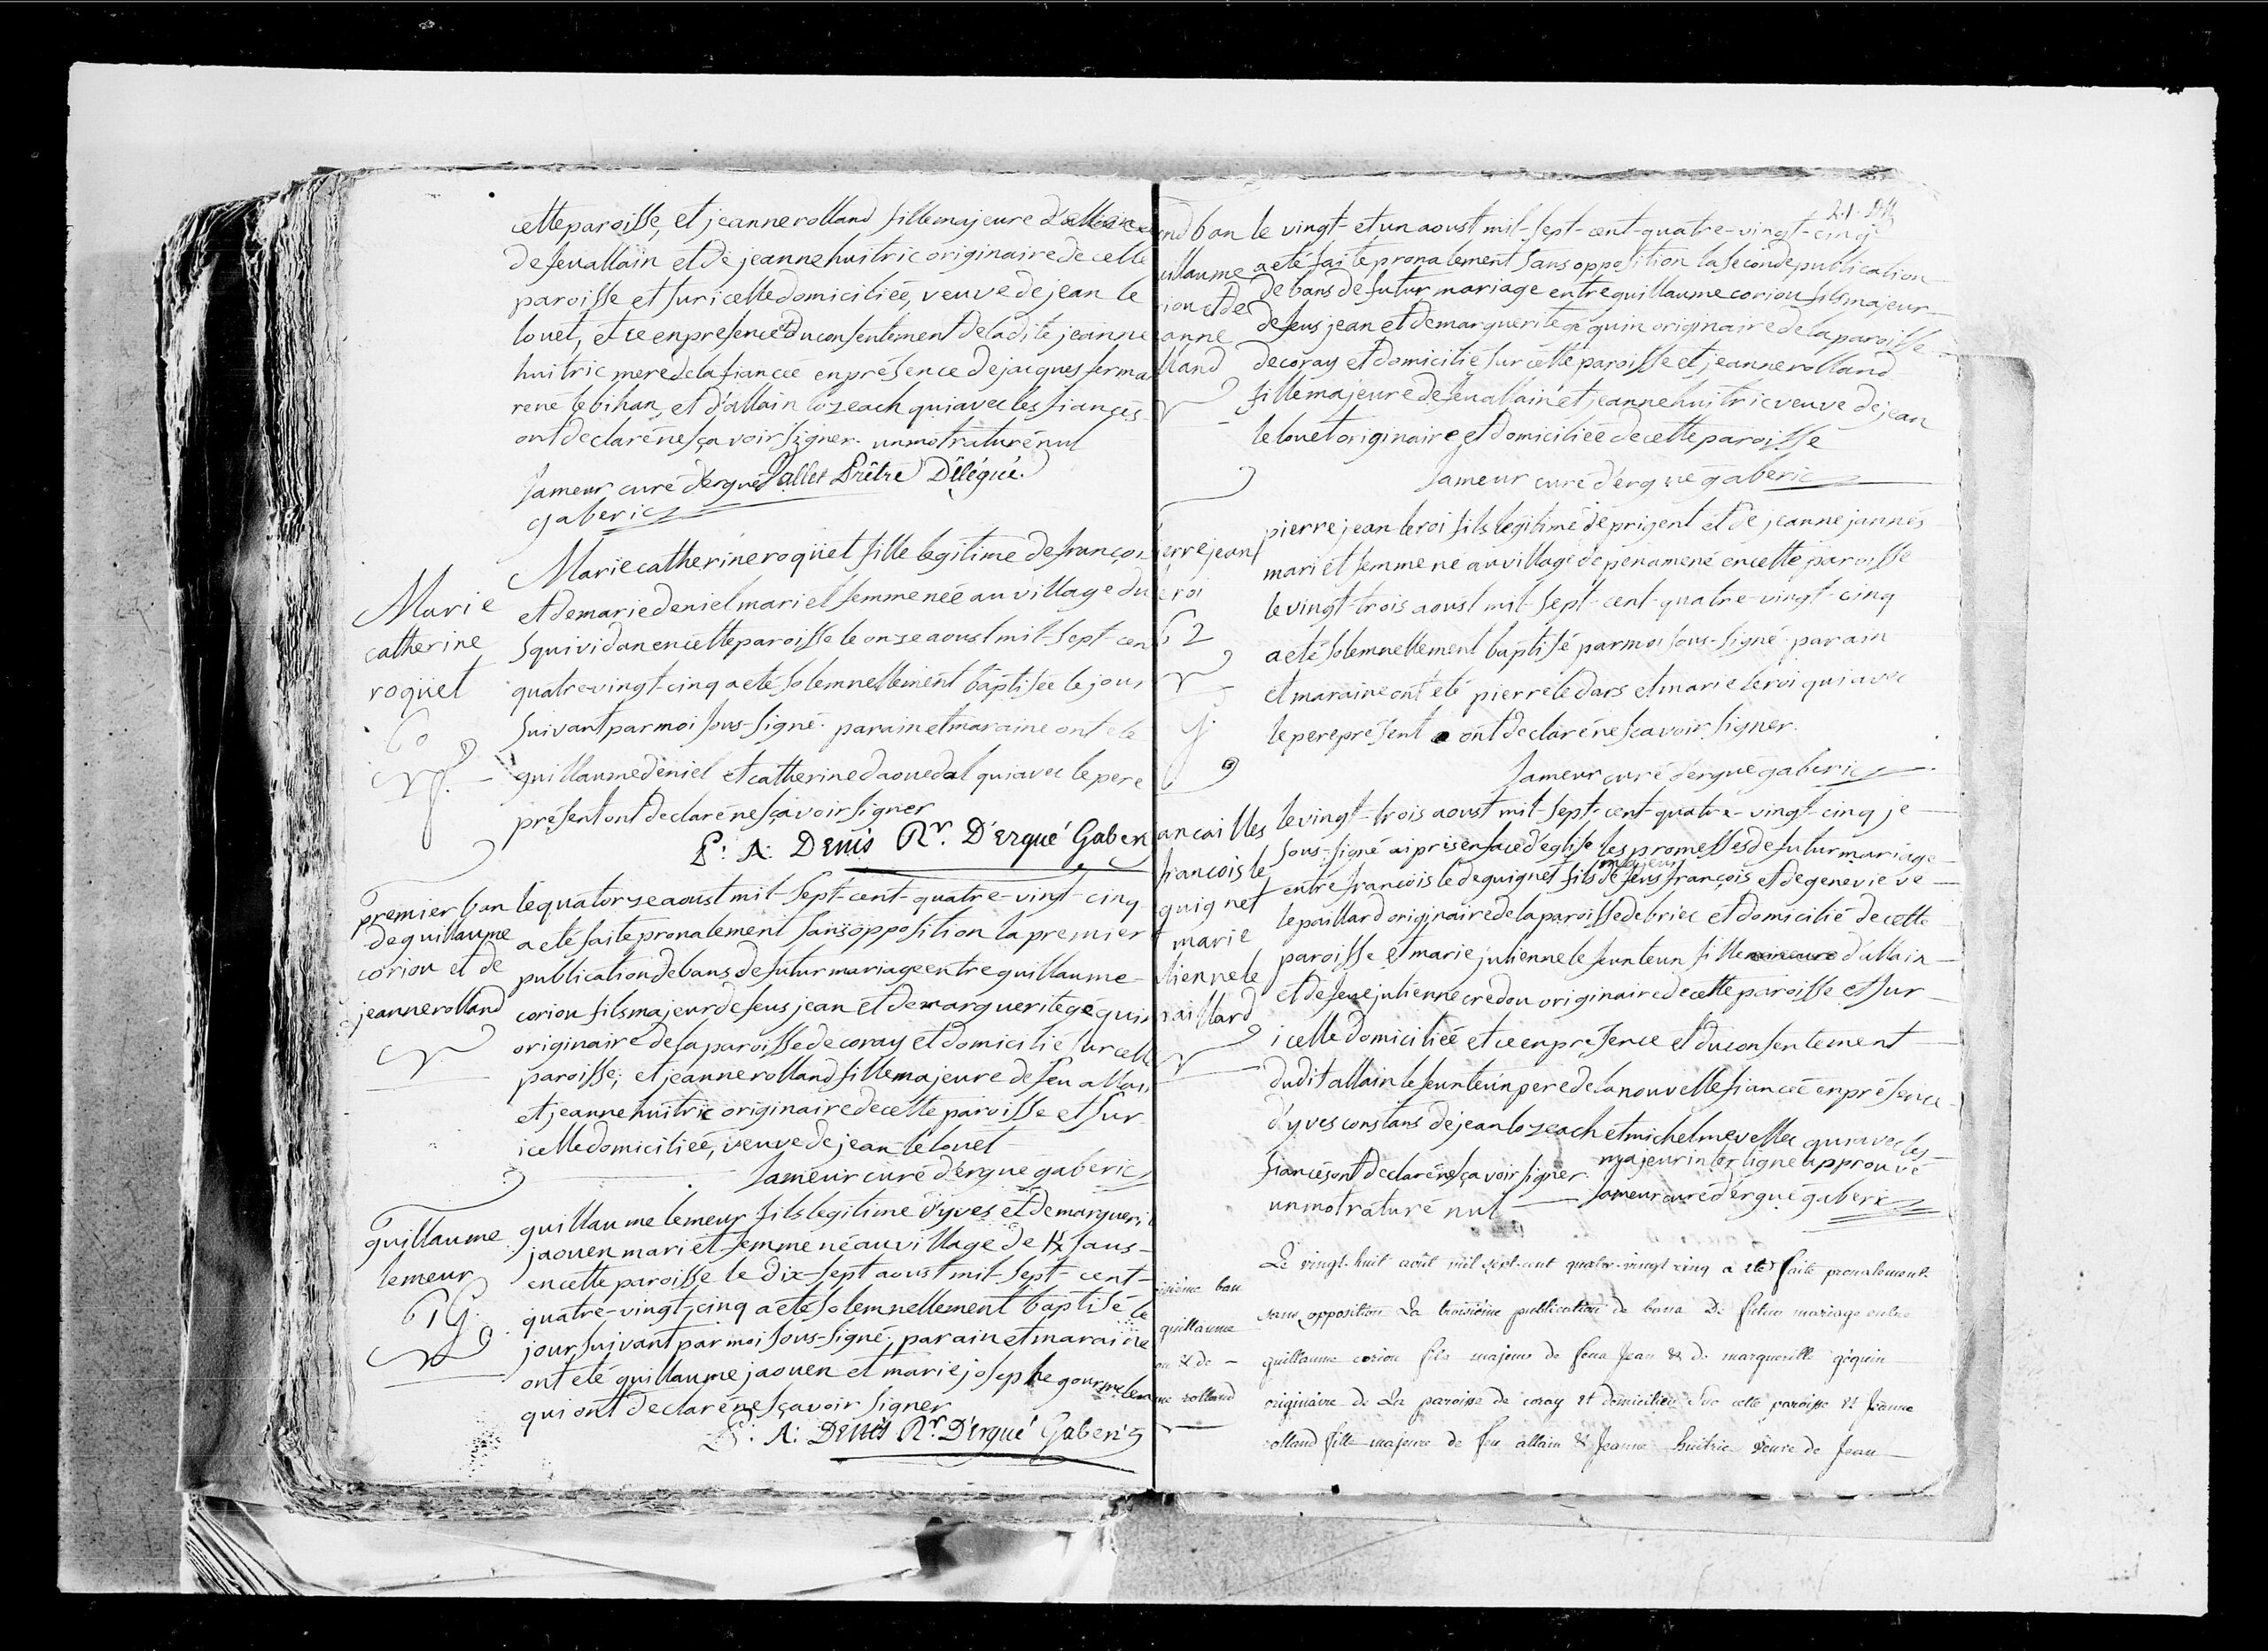 cette paroisse, et jeanne rolland fille majeure
de feu allain et de jeanne huitric originaire de cette
paroisse et sur icelle domiciliée, veuve de jean le
louet, et ce en presence et du consentement de la dite jeanne
huitric mere de la fiancée en présence de jacques
rené le bihan, et d'allain lozeach qui avec les fiancés
ont declaré ne sçavoir signer. un mot raturé nul
Lameur curé d'ergué Lallet Prêtre Délégué.
gaberic
Marie
catherine
roqüet
60
Marie catherine roqüet fille legitime de françoi
et de marie deniel mari et femme née au village du
squividan en cette paroisse le onze aoust mil-sept-cen
quatre-vingt-cinq a eté solemnellement baptisée le jour
suivant par moi sous-signé. parain et maraine ont eté
guillaume deniel et catherine daouedal qui avec le pere
présent ont declaré ne sçavoir signer
P: A: Denis Rr. D'Ergué Gaberi
premier ban
de guillaume
coriou et de
jeanne rolland
le quatorze aoust mil-sept-cent-quatre-vingt-cinq
a eté faite pronalement sans opposition la premier
publication de bans de futur mariage entre guillaume
coriou fils majeur de feus jean et de marguerite géguin
originaire de la paroisse de coray et domicilié sur cette
paroisse; et jeanne rolland fille majeure de feu allain
et jeanne huitric originaire de cette paroisse et sur
icelle domiciliée, veuve de jean le louet
Lameur curé d'ergué gaberic
guillaume
lemeur
61 G.
guillaume lemeur fils legitime d'yves et de margueri
jaouen mari et femme né au village de
en cette paroisse le dix-sept aoust mil-sept-cent-
quatre-vingt-cinq a eté solemnellement baptisé le
jour suivant par moi sous-signé; parain et maraine
ont eté guillaume jaouen et marie josephe gourmelen
qui ont declaré ne sçavoir signer
P: A: Denis Rr. D'Ergué Gaberic
21
nd ban
uillaume
iou et de
anne
lland
le vingt-et un aoust mil-sept-cent-quatre-vingt-cinq
a eté faite pronalement sans opposition la seconde publication
de bans de futur mariage entre guillaume coriou fils majeur
de feus jean et de marguerite géguin originaire de la paroisse
de coray et domicilié sur cette paroisse et jeanne rolland
fille majeure de feu allain et jeanne huitric veuve de jean
le louet originaire et domiciliée de cette paroisse
Lameur curé d'ergué gaberic
ierre jean
eroi
62
G.
pierre jean leroi fils legitime de prigent et de jeanne jannés
mari et femme né au village de penamené en cette paroisse
le vingt-trois aoust mil-sept-cent-quatre-vingt-cinq
a eté solemnellement baptisé par moi sous-signé. parain
et maraine ont eté pierre le dars et marie leroi qui avec
le pere présent ont declaré ne sçavoir signer.
Lameur curé d'ergué gaberic
ancailles
francois le
guignet
marie
lienne le
aillard
le vingt-trois aoust mil-sept-cent-quatre-vingt-cinq je
sous-signé ai pris en face d'église les promesses de futur mariage
majeur
entre françois le deguignet fils de feus françois et de genevieve
le paillard originaire de la paroisse de briec et domicilié de cette
paroisse et marie julienne le feunteun fille d'allain
et de feue julienne credou originaire de cette paroisse et sur
icelle domiciliée et ce en présence et du consentement
du dit allain le feunteun pere de la nouvelle fiancée en présence
d'yves constans de jean lozeach et michel mevellec qui avec les
fiancés ont declaré ne sçavoir signer. majeur interligne approuvé
un mot raturé nul Lameur curé d'ergué gaberic
isième ban
guillaume
ou & de
ne rolland
Le vingt-huit août mil sept-cent quatre-vingt cinq a eté faite pronalement
sans opposition La troisième publication de bans De futur mariage entre
guillaume coriou fils majeur de feus Jean & de marguerite géguin
originaire de La paroisse de coray et domicilié sur cette paroisse et Jeanne
rolland fille majeure de feu allain & Jeanne huitric veuve de Jean